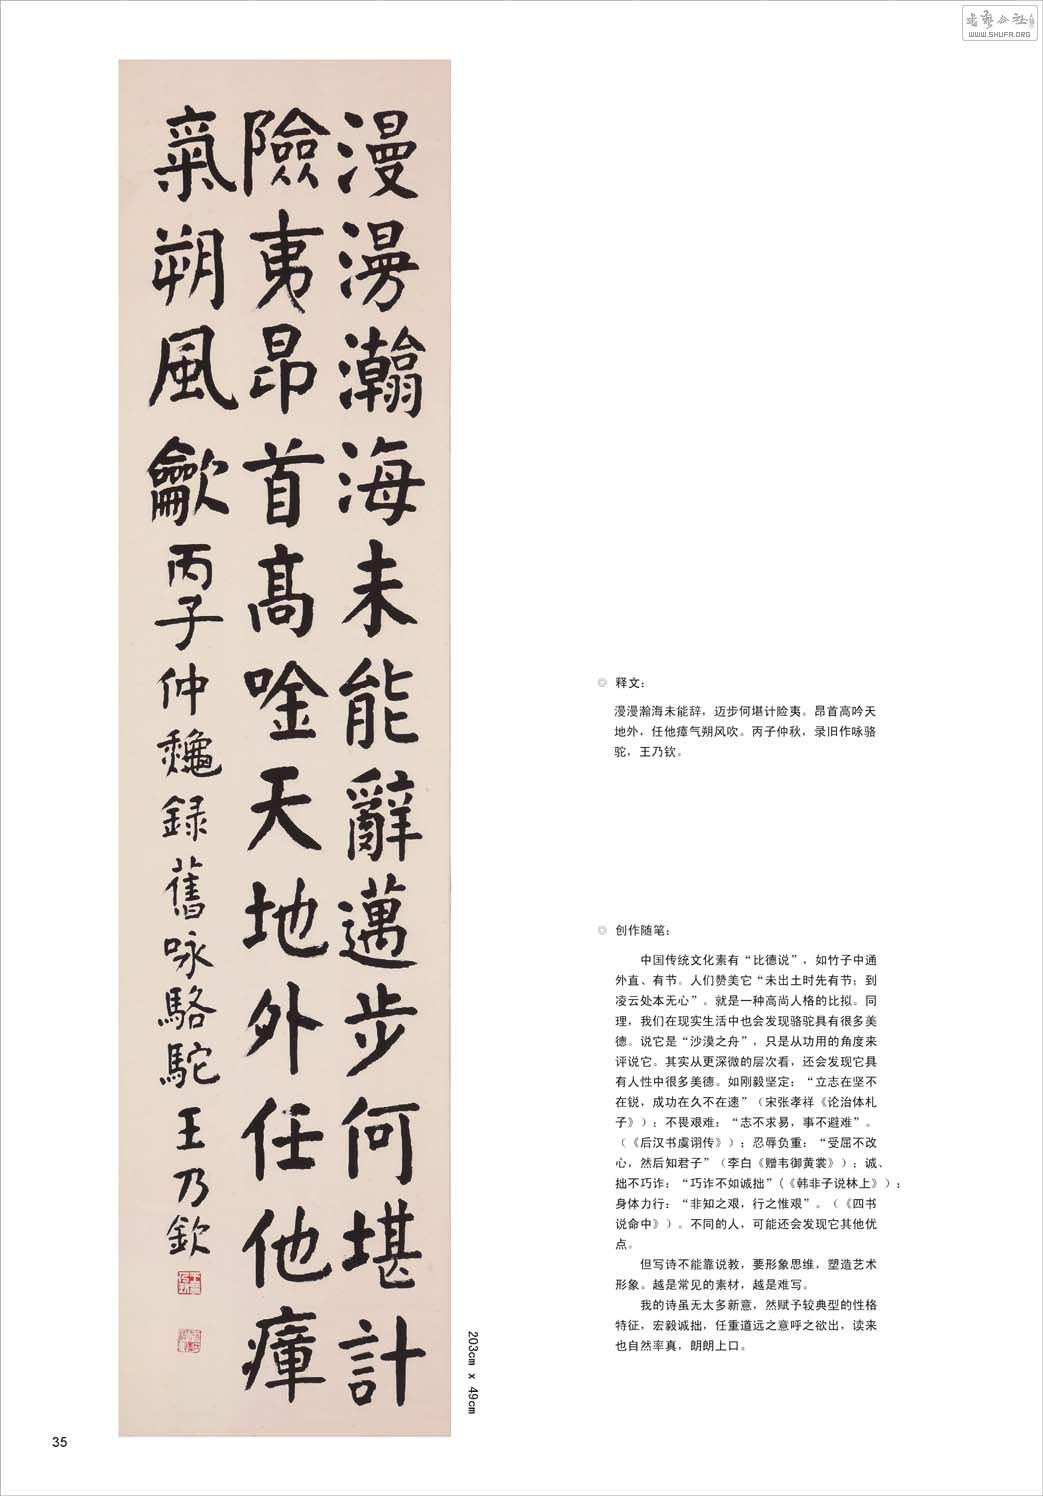 书艺公社
WWW.SHUFA.ORG
漫漫瀚海未能辭邁步何堪計
險夷昂首高唫天地外任他瘴
氣朔風龡丙子仲龝録舊咏駱駝王乃欽
203cm x 49cm
◎ 释文：
漫漫瀚海未能辞，迈步何堪计险夷。昂首高吟天
地外，任他瘴气朔风吹。丙子仲秋，录旧作咏骆
驼，王乃钦。
◎ 创作随笔：
中国传统文化素有“比德说”，如竹子中通
外直、有节。人们赞美它“未出土时先有节；到
凌云处本无心”。就是一种高尚人格的比拟。同
理，我们在现实生活中也会发现骆驼具有很多美
德。说它是“沙漠之舟”，只是从功用的角度来
评说它。其实从更深微的层次看，还会发现它具
有人性中很多美德。如刚毅坚定：“立志在坚不
在锐，成功在久不在速”（宋张孝祥《论治体札
子》）；不畏艰难：“志不求易，事不避难”。
（《后汉书虞诩传》）；忍辱负重：“受屈不改
心，然后知君子”（李白《赠韦御黄裳》）；诚、
拙不巧诈：“巧诈不如诚拙”（《韩非子说林上》）；
身体力行：“非知之艰，行之惟艰”。（《四书
说命中》）。不同的人，可能还会发现它其他优
点。
但写诗不能靠说教，要形象思维，塑造艺术
形象。越是常见的素材，越是难写。
我的诗虽无太多新意，然赋予较典型的性格
特征，宏毅诚拙，任重道远之意呼之欲出，读来
也自然率真，朗朗上口。
35